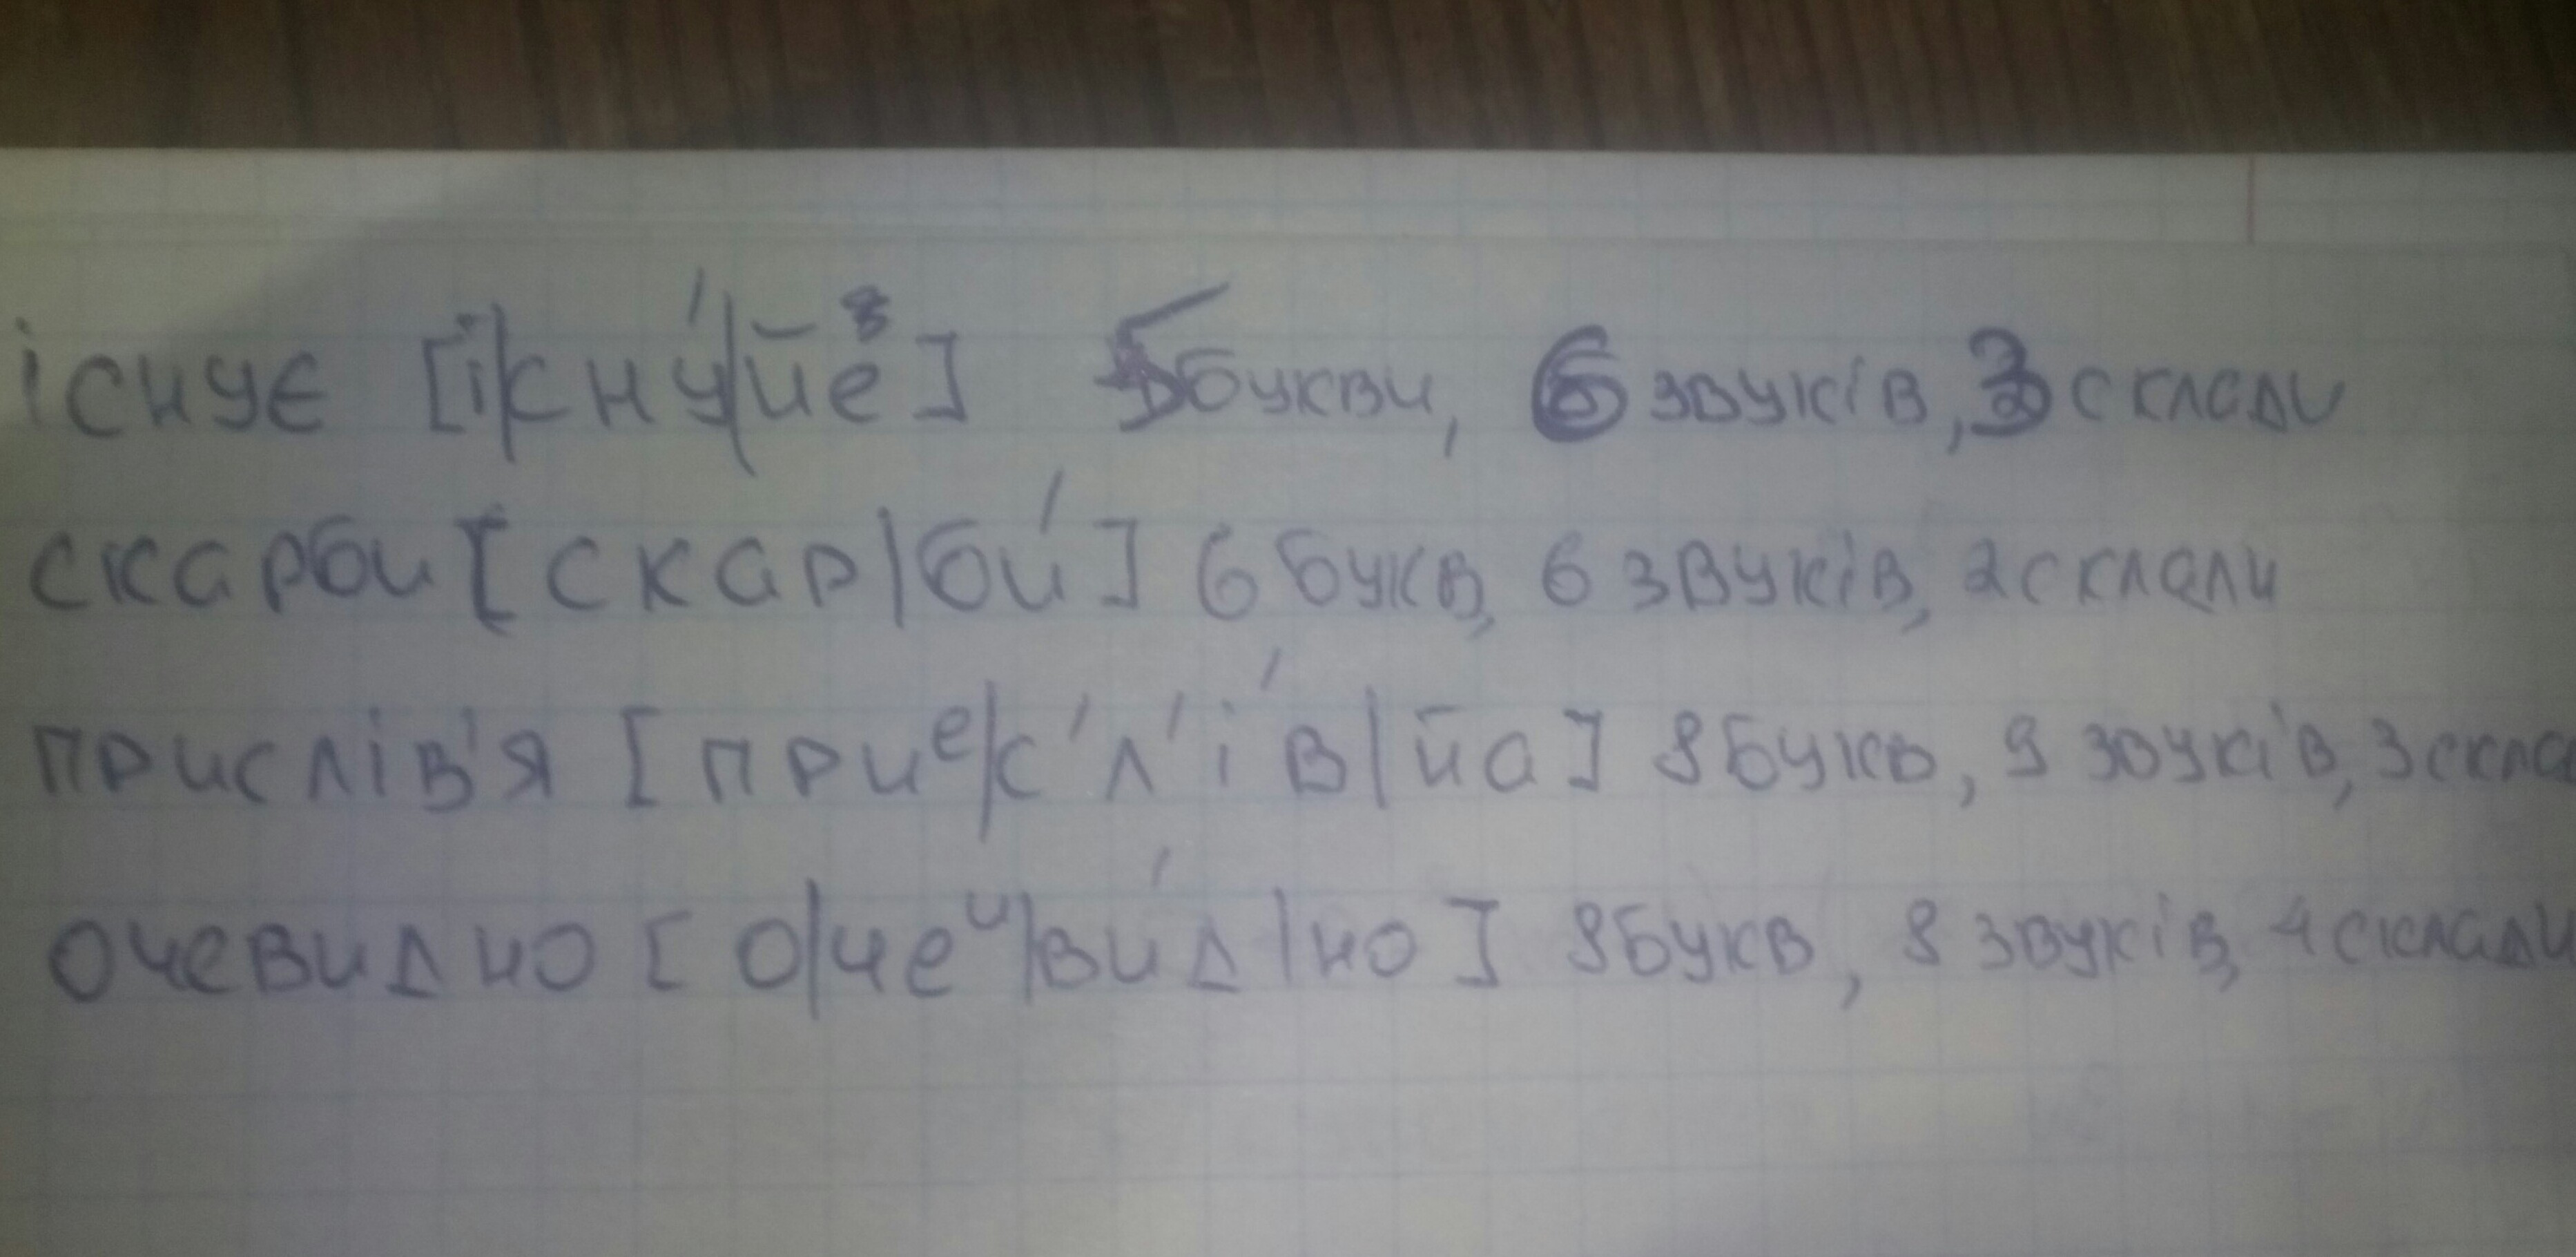 існує [і|сну́|йе] 5 букви, 6 звуків, 3 склади
скарби [скар|би́] 6 букв, 6 звуків, 2 склади
прислів'я [приᵉ|с'л'і́в|йа] 8 букв, 9 звуків, 3 скла
очевидно [о|чеᴻ|ви́д|но] 8 букв, 8 звуків, 4 склади